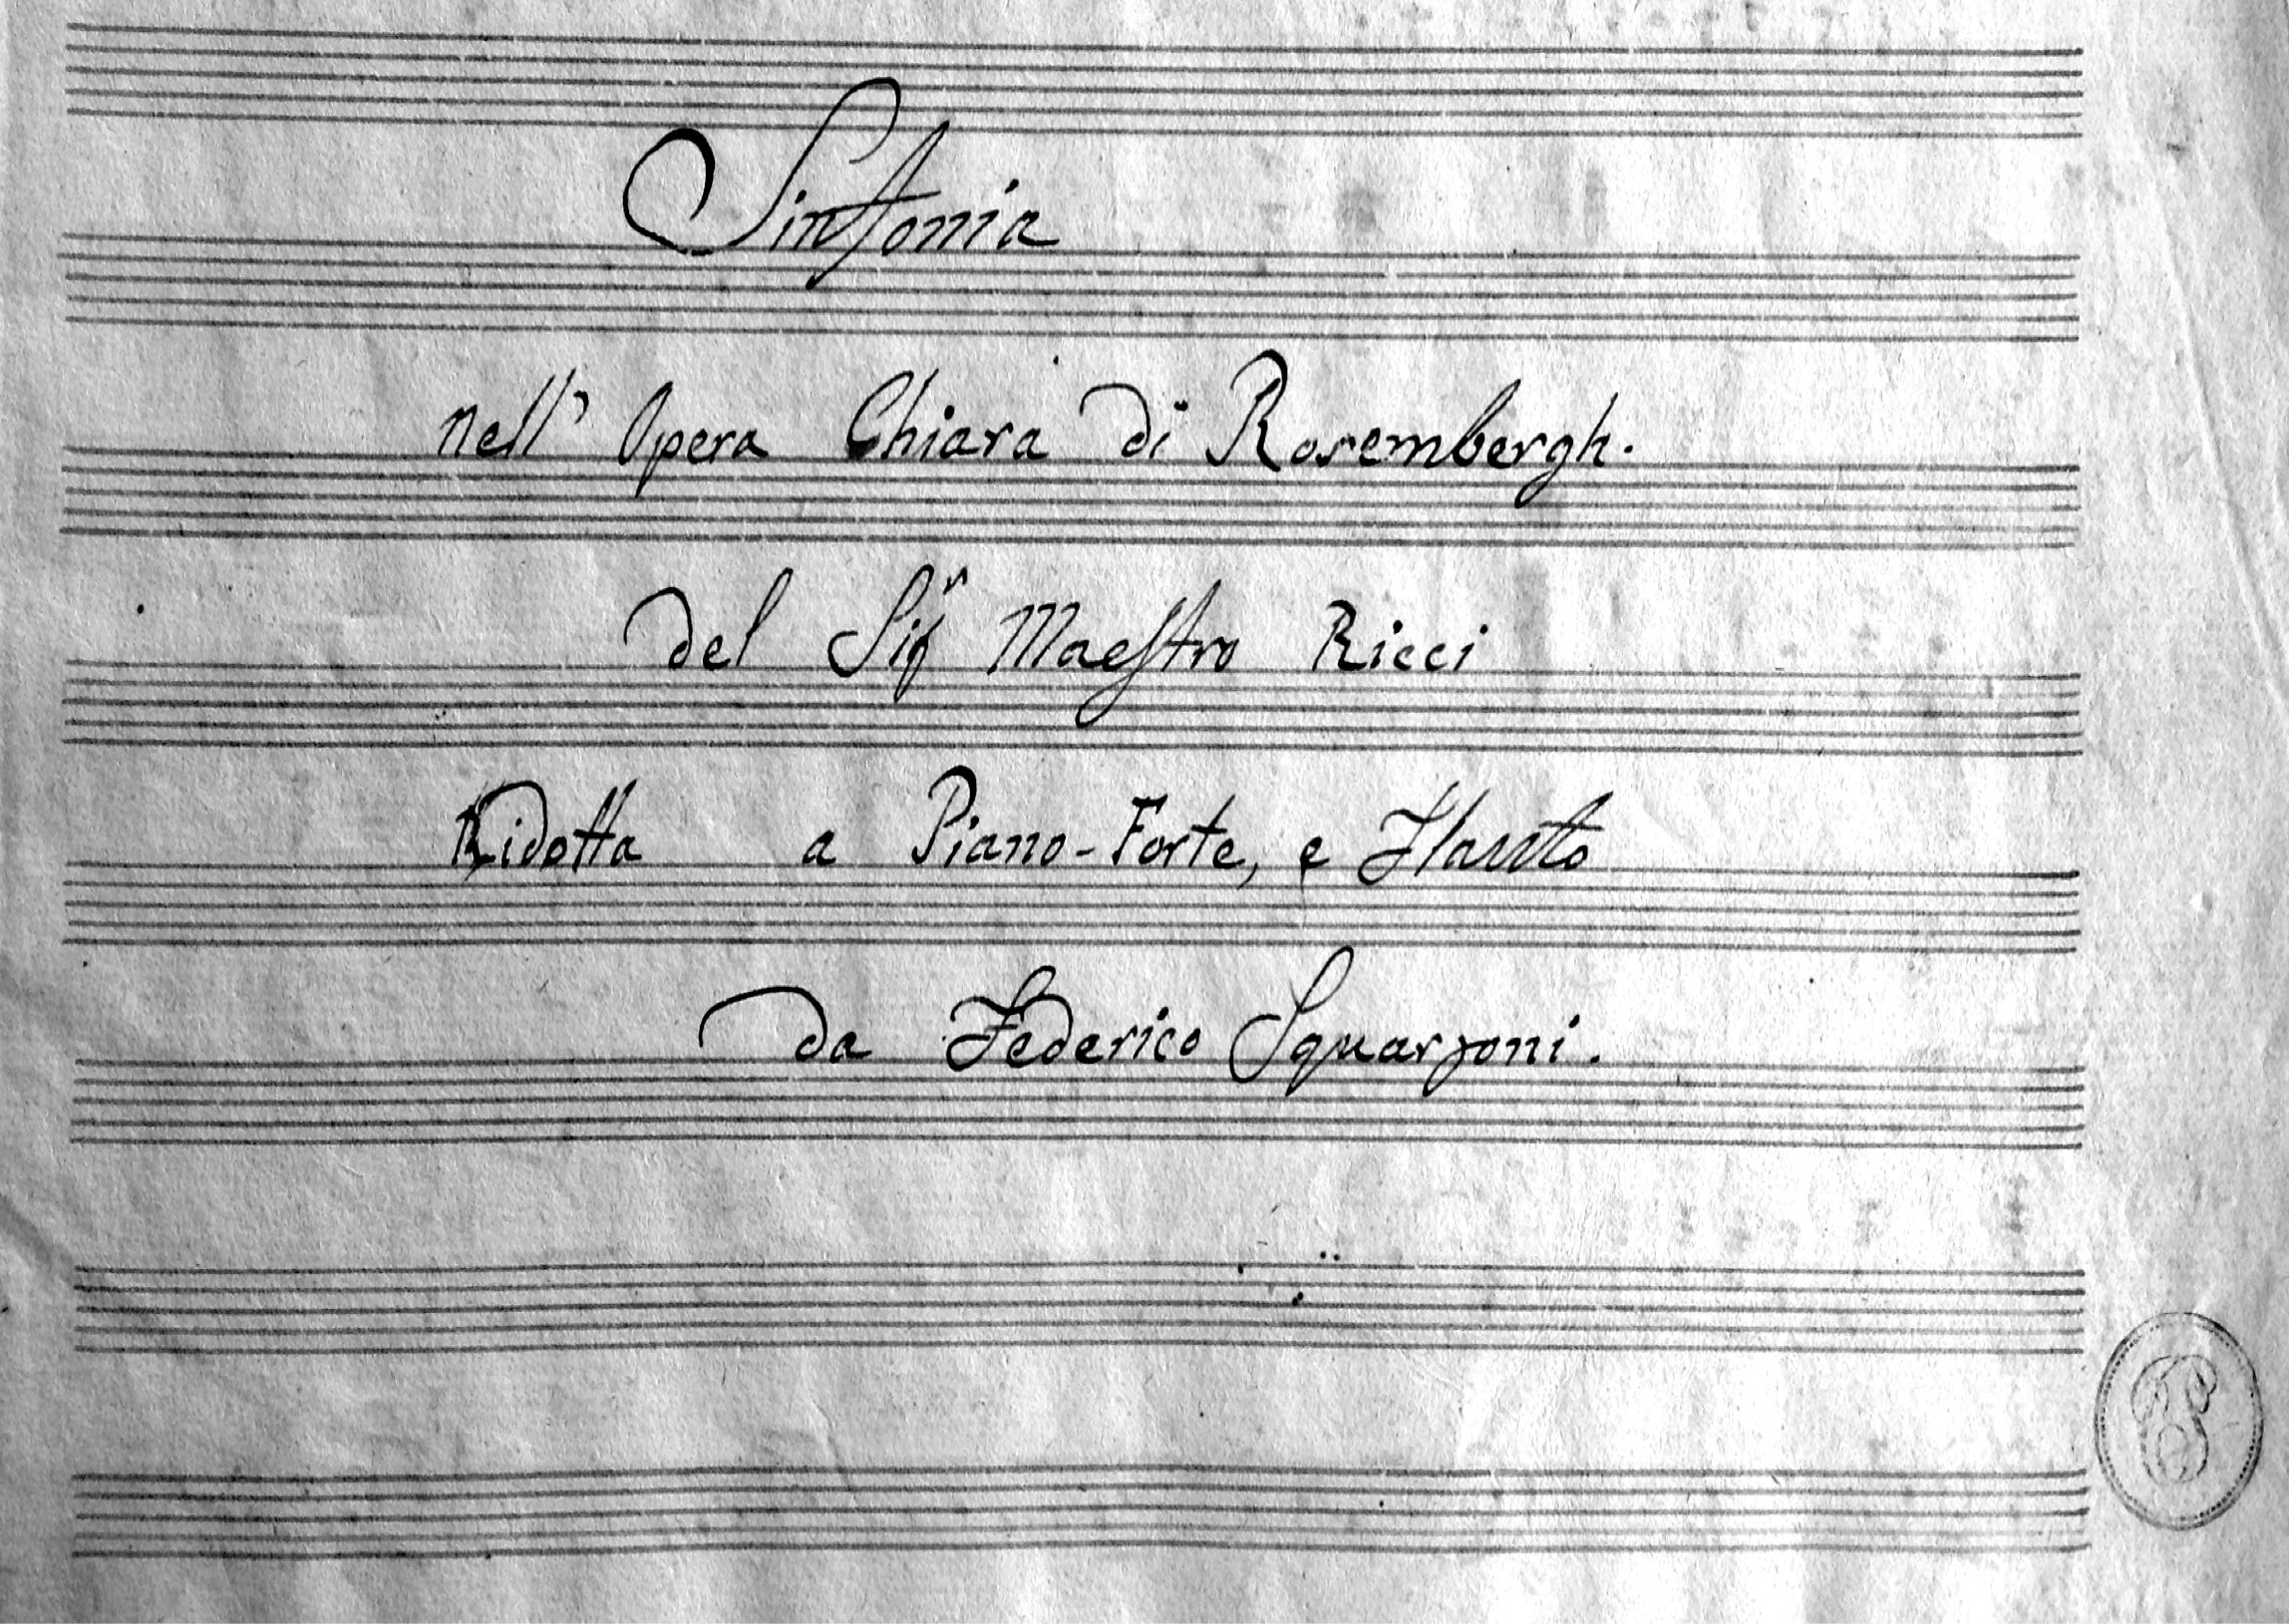 Sinfonia
nell' Opera Chiara di Rosembergh.
del Sigr Maestro Ricci
Ridotta a Piano-Forte, e Flauto
da Federico Squarzoni.